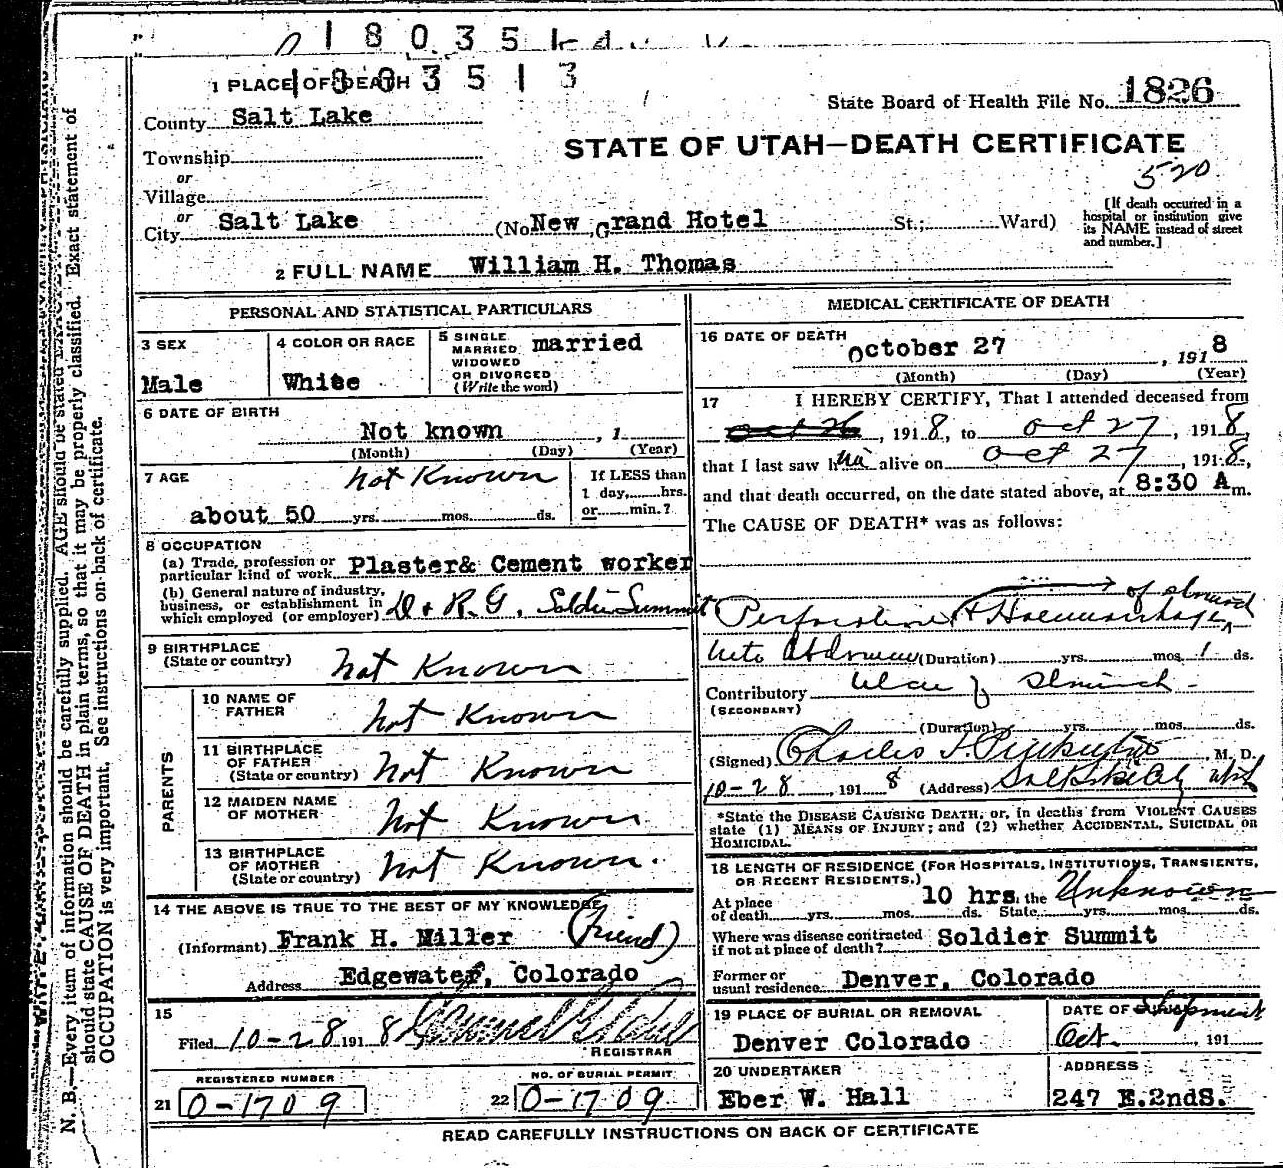 1803514
1003513
1 PLACE OF DEATH
State Board of Health File No. 1826
County Salt Lake
STATE OF UTAH—DEATH CERTIFICATE
Township
520
or
Village
or
City Salt Lake (No New Grand Hotel St.; Ward)
[If death occurred in a hospital or institution give its NAME instead of street and number.]
2 FULL NAME William H. Thomas
PERSONAL AND STATISTICAL PARTICULARS
3 SEX
Male
4 COLOR OR RACE
White
5 SINGLE
MARRIED
WIDOWED
OR DIVORCED
(Write the word)
married
6 DATE OF BIRTH
Not known , 1
(Month) (Day) (Year)
7 AGE
Not Known
about 50 yrs. mos. ds.
If LESS than
1 day, hrs.
or min.?
8 OCCUPATION
(a) Trade, profession or
particular kind of work Plaster& Cement worker
(b) General nature of industry,
business, or establishment in
which employed (or employer) D & R.G. Soldier Summit
9 BIRTHPLACE
(State or country) Not Known
PARENTS
10 NAME OF
FATHER Not Known
11 BIRTHPLACE
OF FATHER
(State or country) Not Known
12 MAIDEN NAME
OF MOTHER Not Known
13 BIRTHPLACE
OF MOTHER
(State or country) Not Known.
14 THE ABOVE IS TRUE TO THE BEST OF MY KNOWLEDGE
(Informant) Frank H. Miller (friend)
Address Edgewater, Colorado
15
Filed 10-28 191 8
REGISTRAR
REGISTERED NUMBER
21 0-1709
NO. OF BURIAL PERMIT
22 0-1709
MEDICAL CERTIFICATE OF DEATH
16 DATE OF DEATH
October 27 , 191 8
(Month) (Day) (Year)
17 I HEREBY CERTIFY, That I attended deceased from
Oct 26 , 191 8, to Oct 27 , 191 8
that I last saw him alive on Oct 27 , 191 8,
and that death occurred, on the date stated above, at 8:30 A m.
The CAUSE OF DEATH* was as follows:
of stomach
Perforation & Haemorrhage
into Abdomen (Duration) yrs. mos. 1 ds.
Contributory Ulcer of Stomach
(SECONDARY)
(Duration) yrs. mos. ds.
(Signed) Charles M. D.
10-28 , 191 8 (Address) Salt Lake City Utah
*State the DISEASE CAUSING DEATH, or, in deaths from VIOLENT CAUSES
state (1) MEANS OF INJURY; and (2) whether ACCIDENTAL, SUICIDAL OR
HOMICIDAL.
18 LENGTH OF RESIDENCE (FOR HOSPITALS, INSTITUTIONS, TRANSIENTS,
OR RECENT RESIDENTS.)
At place
of death yrs. mos. ds. 10 hrs. In the State yrs. mos. ds. Unknown
Where was disease contracted
if not at place of death? Soldier Summit
Former or
usual residence Denver, Colorado
19 PLACE OF BURIAL OR REMOVAL
Denver Colorado
DATE OF Shipment
Oct. 191
20 UNDERTAKER
Eber W. Hall
ADDRESS
247 E.2ndS.
READ CAREFULLY INSTRUCTIONS ON BACK OF CERTIFICATE
N. B.—Every item of information should be carefully supplied. AGE should be stated EXACTLY.
should state CAUSE OF DEATH in plain terms, so that it may be properly classified. Exact statement of
OCCUPATION is very important. See instructions on back of certificate.